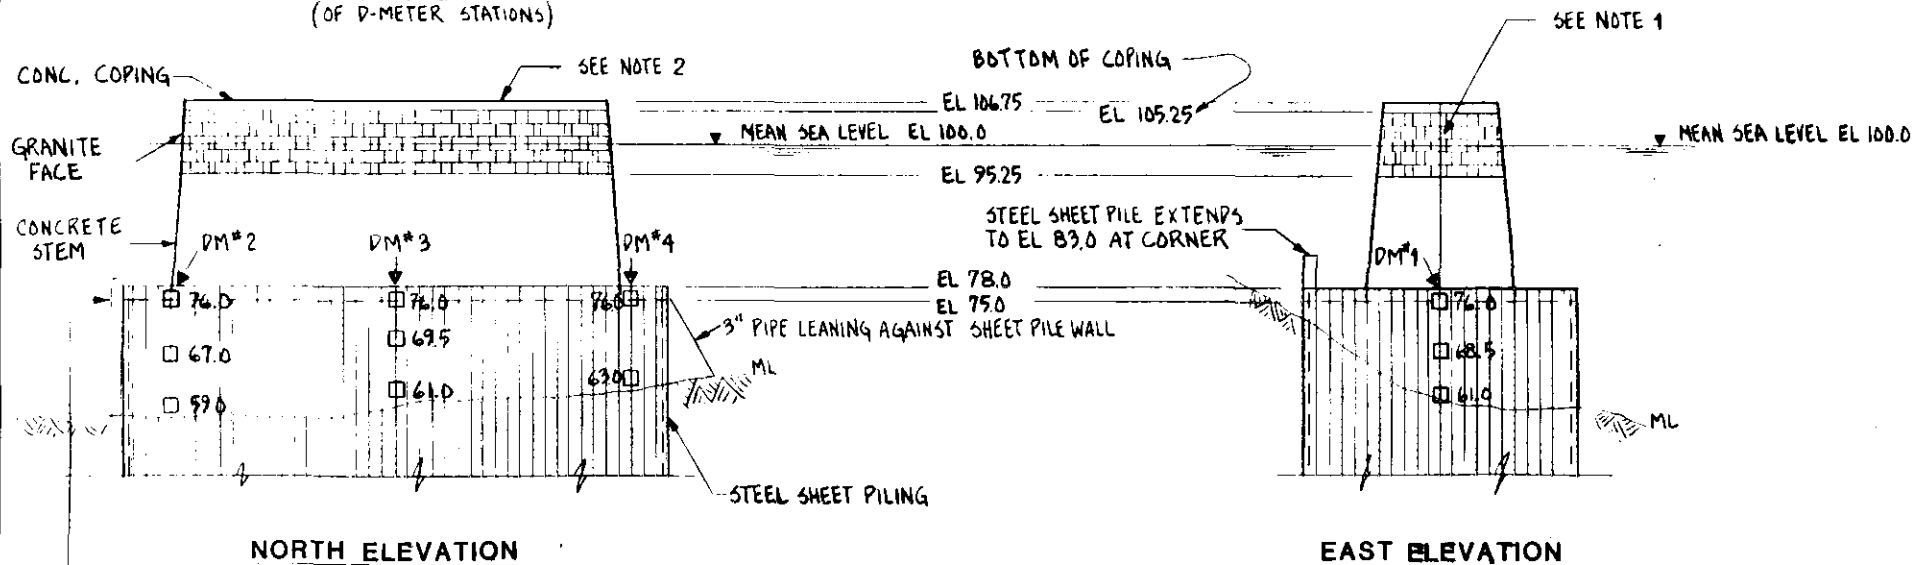 (OF D-METER STATIONS)
SEE NOTE 1
CONC. COPING
SEE NOTE 2
BOTTOM OF COPING
EL 106.75
EL 105.25
GRANITE
FACE
MEAN SEA LEVEL EL 100.0
MEAN SEA LEVEL EL 100.0
EL 95.25
CONCRETE
STEM
STEEL SHEET PILE EXTENDS
TO EL 83.0 AT CORNER
DM#2
DM#3
DM#4
DM#1
EL 78.0
EL 75.0
76.0
76.0
76.0
76.0
3" PIPE LEANING AGAINST SHEET PILE WALL
67.0
69.5
63.0
68.5
59.0
61.0
61.0
ML
ML
STEEL SHEET PILING
NORTH ELEVATION
EAST ELEVATION